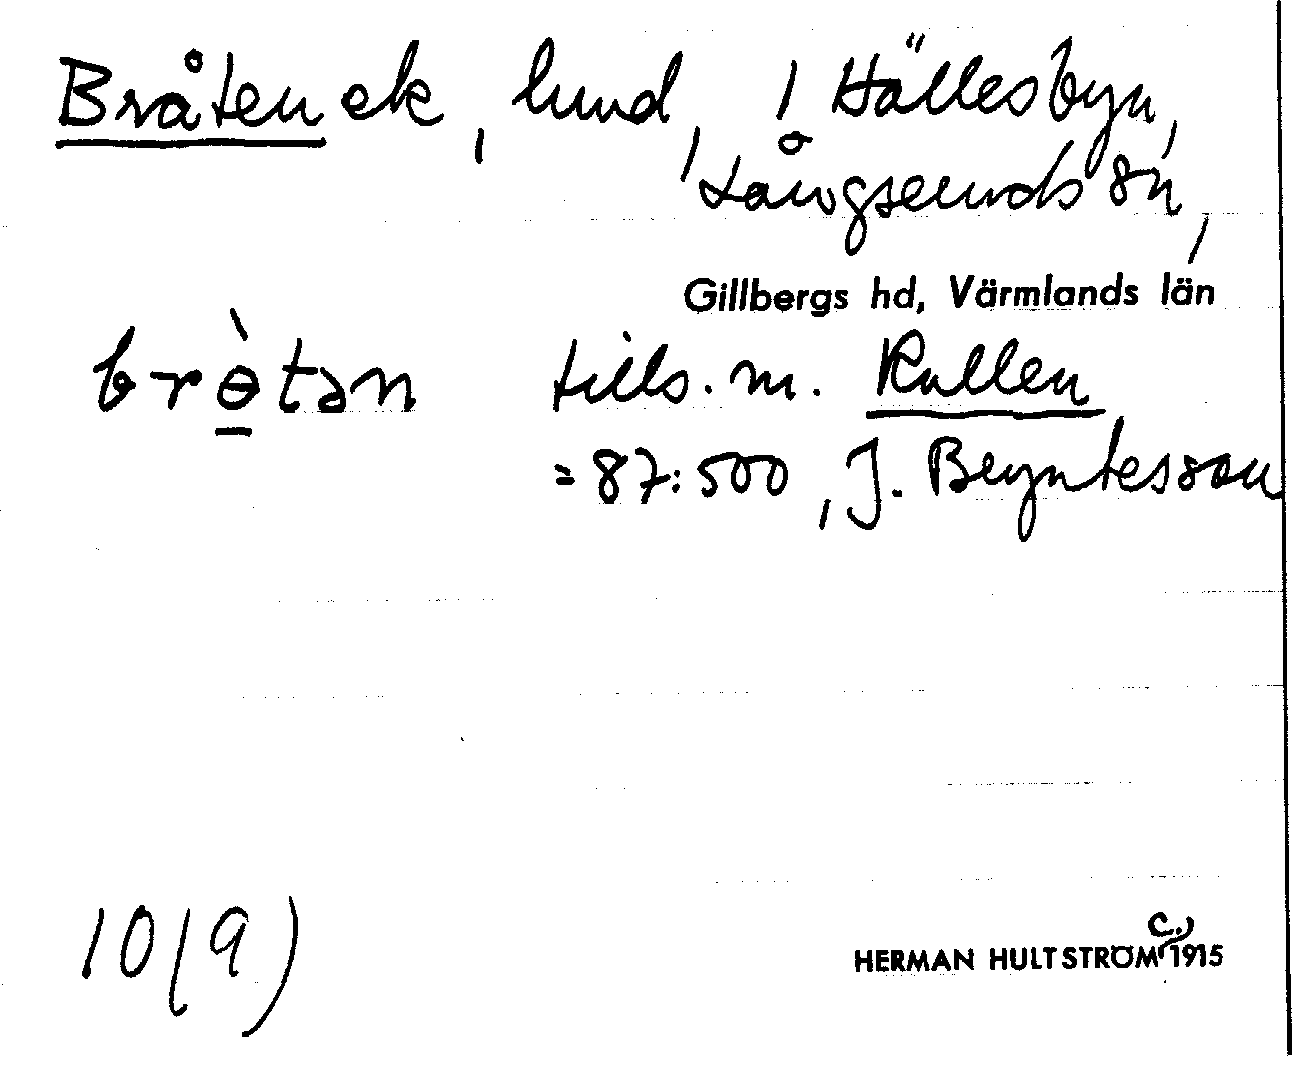 Bråten ek, lund, i Hällesbyn,
Långseruds sn,
Gillbergs hd, Värmlands län
brɵ̀tən tills. m. Kullen
= 87:500, J. Beyntesson
10(9)
HERMAN HULTSTRÖM c. 1915